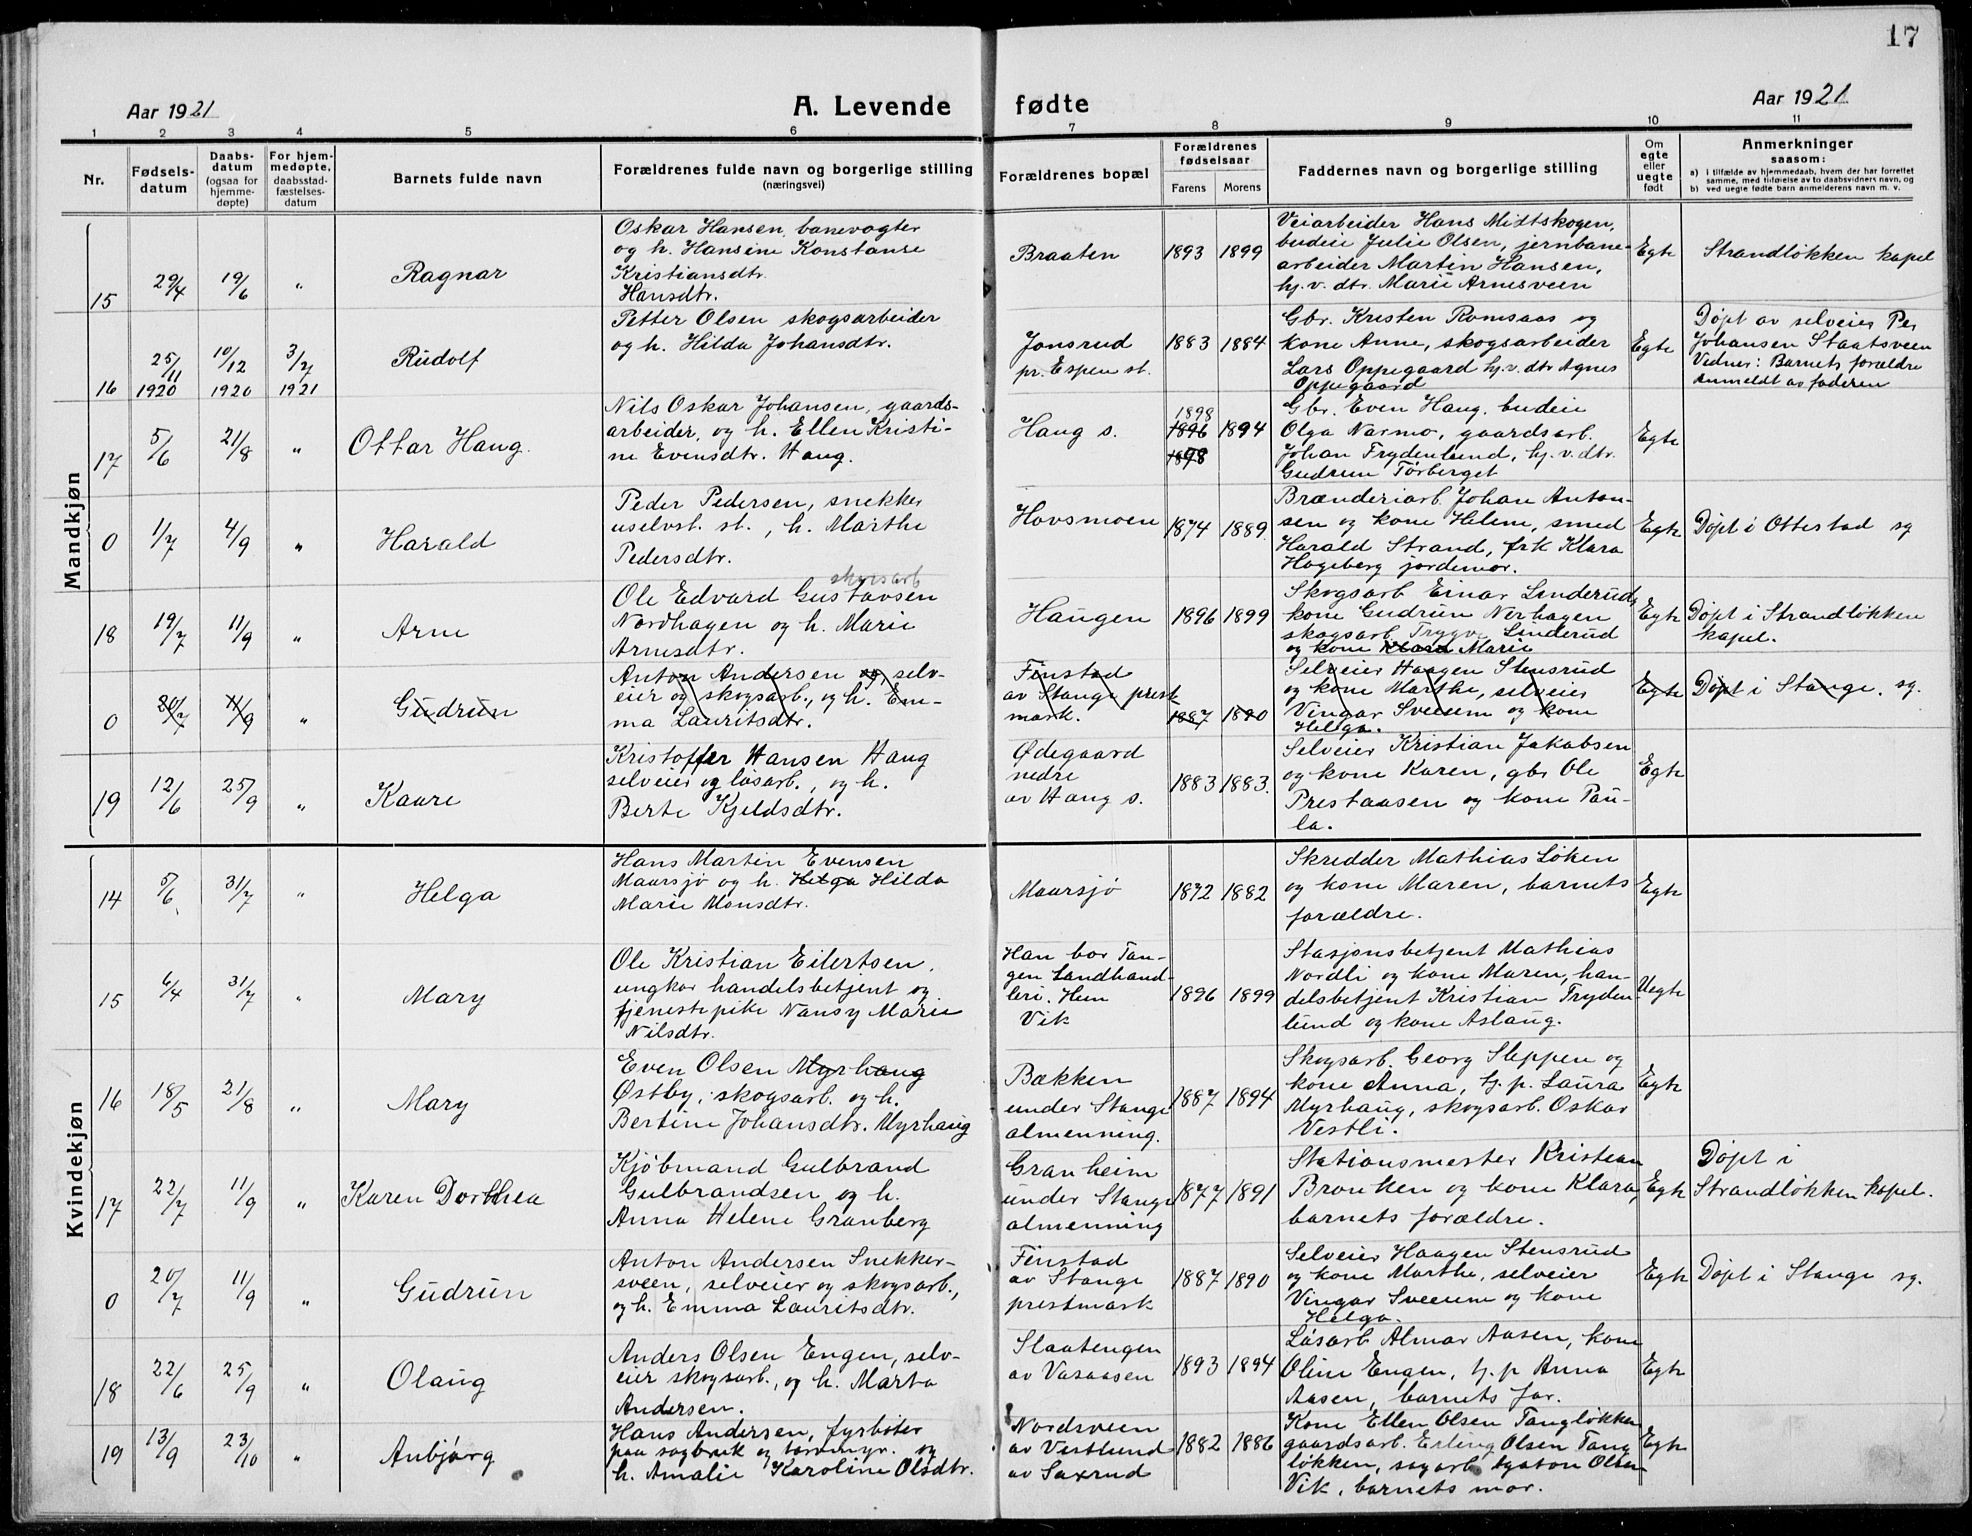 17
Aar 1921
A. Levende fødte
Aar 1921
1 2 3 4 5 6 7 8 9 10 11
Nr.
Fødsels-
datum
Daabs-
datum
(ogsaa for
hjemme-
døpte)
For hjem-
medøpte,
daabsstad-
fæstelses-
datum
Barnets fulde navn
Forældrenes fulde navn og borgerlige stilling
(næringsvei)
Forældrenes bopæl
Forældrenes
fødselsaar
Farens Morens
Faddernes navn og borgerlige stilling
Om
egte
eller
uegte
født
Anmerkninger
saasom:
a) i tilfælde av hjemmedaab, hvem der har forrettet
samme, med tilføielse av to daabsvidners navn, og
b) ved uegte fødte barn anmelderens navn m. v.
Mandkjøn
15 29/4 19/6 " Ragnar
Oskar Hansen, banevogter
og h. Hansine Konstanse
Kristiansdtr.
Hansdtr.
Braaten 1893 1899
Veiarbeider Hans Midtskogen,
budeie Julie Olsen, jernbane-
arbeider Martin Hansen,
hj. v. dtr. Marie Arnesveen
Egte
Strandløkken kapel
16 25/11 1920 10/12 1920 3/7 1921 Rudolf
Petter Olsen skogsarbeider
og h. Hilda Johansdtr.
Jonsrud
pr. Espen st.
1883 1884
Gbr. Kristen Romsaas og
kone Anne, skogsarbeider
Lars Oppegaard hj. v. dtr Agnes
Oppegaard
Egte
Døpt av selveier Per
Johansen Staatsveen
Vidner: Barnets forældre
Anmeldt av faderen
17 5/6 21/8 " Ottar Haug
Nils Oskar Johansen, gaards-
arbeider, og h. Ellen Kristi-
ne Evensdtr. Haug.
Haug s.
1898
1896 1894
1898
Gbr. Even Haug, budeie
Olga Narmo, gaardsarb.
Johan Frydenlund, hj. v. dtr.
Gudrun Torberget
Egte
0 1/7 4/9 " Harald
Peder Pedersen, snekker
uselvst. st., h. Marthe
Pedersdtr.
Hovsmoen 1874 1889
Brænderiarb. Johan Anton-
sen og kone Helene, smed
Harald Strand, frk Klara
Hageberg jordemor.
Egte
Døpt i Ottestad sg
18 19/7 11/9 " Arne
skogsarb
Ole Edvard Gustavsen
Nordhagen og h. Marie
Arnesdtr.
Haugen 1896 1899
Skogsarb Einar Linderud,
kone Gudrun Nerhagen
skogsarb. Trygve Linderud
og kone Klara Marie
Egte
Døpt i Strandløkken
kapel.
0 20/7 11/9 " Gudrun
Anton Andersen og, selv-
eier og skogsarb., og h. Em-
ma Lauritsdtr.
Finstad
av Stange prest
mark.
1887 1890
Selveier Haagen Stensrud
og kone Marthe, selveier
Vingar Sveeum og kone
Helga.
Egte
Døpt i Stange. sg.
19 12/6 25/9 " Kaare
Kristoffer Hansen Haug
selveier og løsarb., og h.
Berte Kjeldsdtr.
Ødegaard
nedre
av Haug s.
1883 1883.
Selveier Kristian Jakobsen
og kone Karen, gbr Ole
Prestaasen og kone Pau-
la.
Egte
Kvindekjøn
14 5/6 31/7 " Helga
Hans Martin Evensen
Maarsjø og h. Helga Hilda
Marie Monsdtr.
Maarsjø 1872 1882
Skredder Mathias Løken
og kone Maren, barnets
forældre.
Egte
15 6/4 31/7 " Mary
Ole Kristian Eilertsen,
ungkar handelsbetjent og
tjenestepike Nansy Marie
Nilsdtr.
Han bor Tan-
gen Landhand-
leri. Hun
Vik
1896 1899
Stasjonsbetjent Mathias
Nordli og kone Maren, han-
delsbetjent Kristian Fryden-
lund og kone Aslaug.
Uegte
16 18/5 21/8 " Mary
Even Olsen Myrhaug
Østby, skogsarb. og h.
Bertine Johansdtr. Myrhaug
Bækken
under Stange
almenning.
1887 1894
Skogsarb. Georg Sleppen og
kone Anna, hj. p. Laura
Myrhaug, skogsarb. Oskar
Vestli.
Egte
17 22/7 11/9 " Karen Dorthea
Kjøbmand Gulbrand
Gulbrandsen og h.
Anna Helene Granberg
Granheim
under Stange
almenning
1877 1891
Stationsmester Kristian
Bronken og kone Klara,
barnets forældre.
Egte
Døpt i
Strandløkken kapel.
0 20/7 11/9 " Gudrun
Anton Andersen Snekker-
sveen, selveier og skogsarb.,
og h. Emma Lauritsdtr.
Finstad
av Stange
prestmark
1887 1890
Selveier Haagen Stensrud
og kone Marthe, selveier
Vingar Sveeum og kone
Helga.
Egte
Døpt i Stange sg.
18 22/6 25/9 " Olaug
Anders Olsen Engen, selv-
eier skogsarb., og h. Marta
Andersen.
Slaatengen
av Vasaasen
1893 1894
Løsarb Almar Aasen, kone
Oline Engen, hj. p Anna
Aasen, barnets far.
Egte
19 13/9 23/10 " Anbjørg
Hans Andersen, fyrbøter
paa sagbruk og tømmyr. og
h. Amalie Karoline Olsdtr.
Nordsveen
av Vestlund
av Saxrud
1882 1886
Kone Ellen Olsen Tangløkken
gaardsarb. Erling Olsen Tang
løkken, sagarb. Agaton Olsen
Vik, barnets mor.
Egte